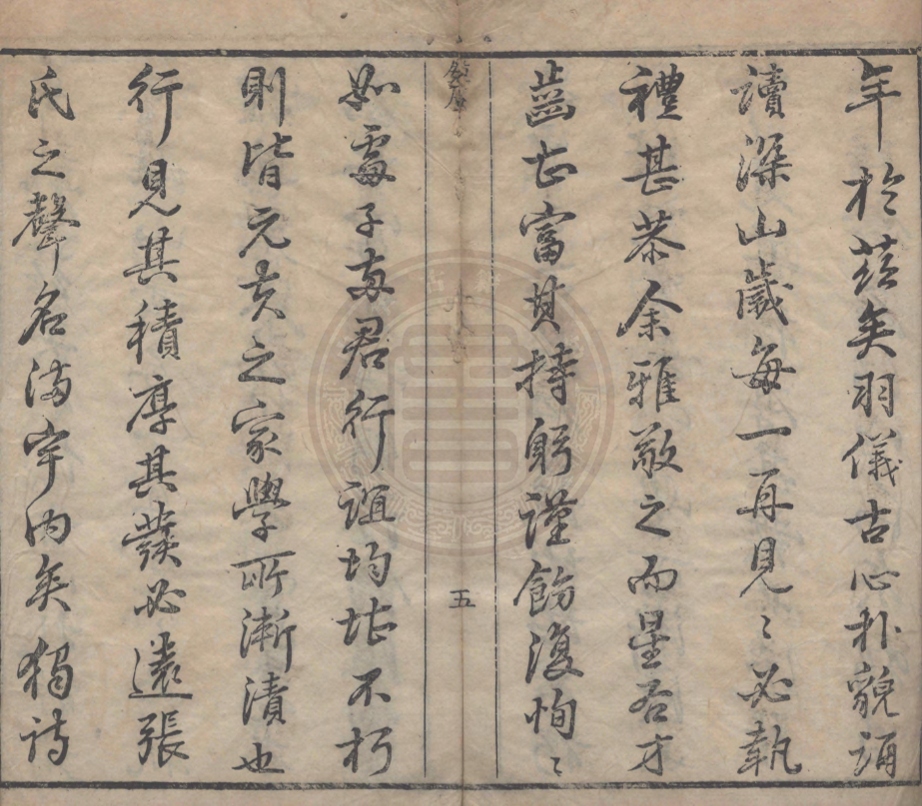 年於茲矣羽儀古心朴貌誦
讀深山歲每一再見〻必執
禮甚恭余雅敬之而星若才
齒甚富其持躬謹飭復恂〻
如處子兩君行誼均堪不朽
則皆元亥之家學所漸漬也
行見其積厚其發必遠張
氏之聲名滿宇内矣獨詩
五